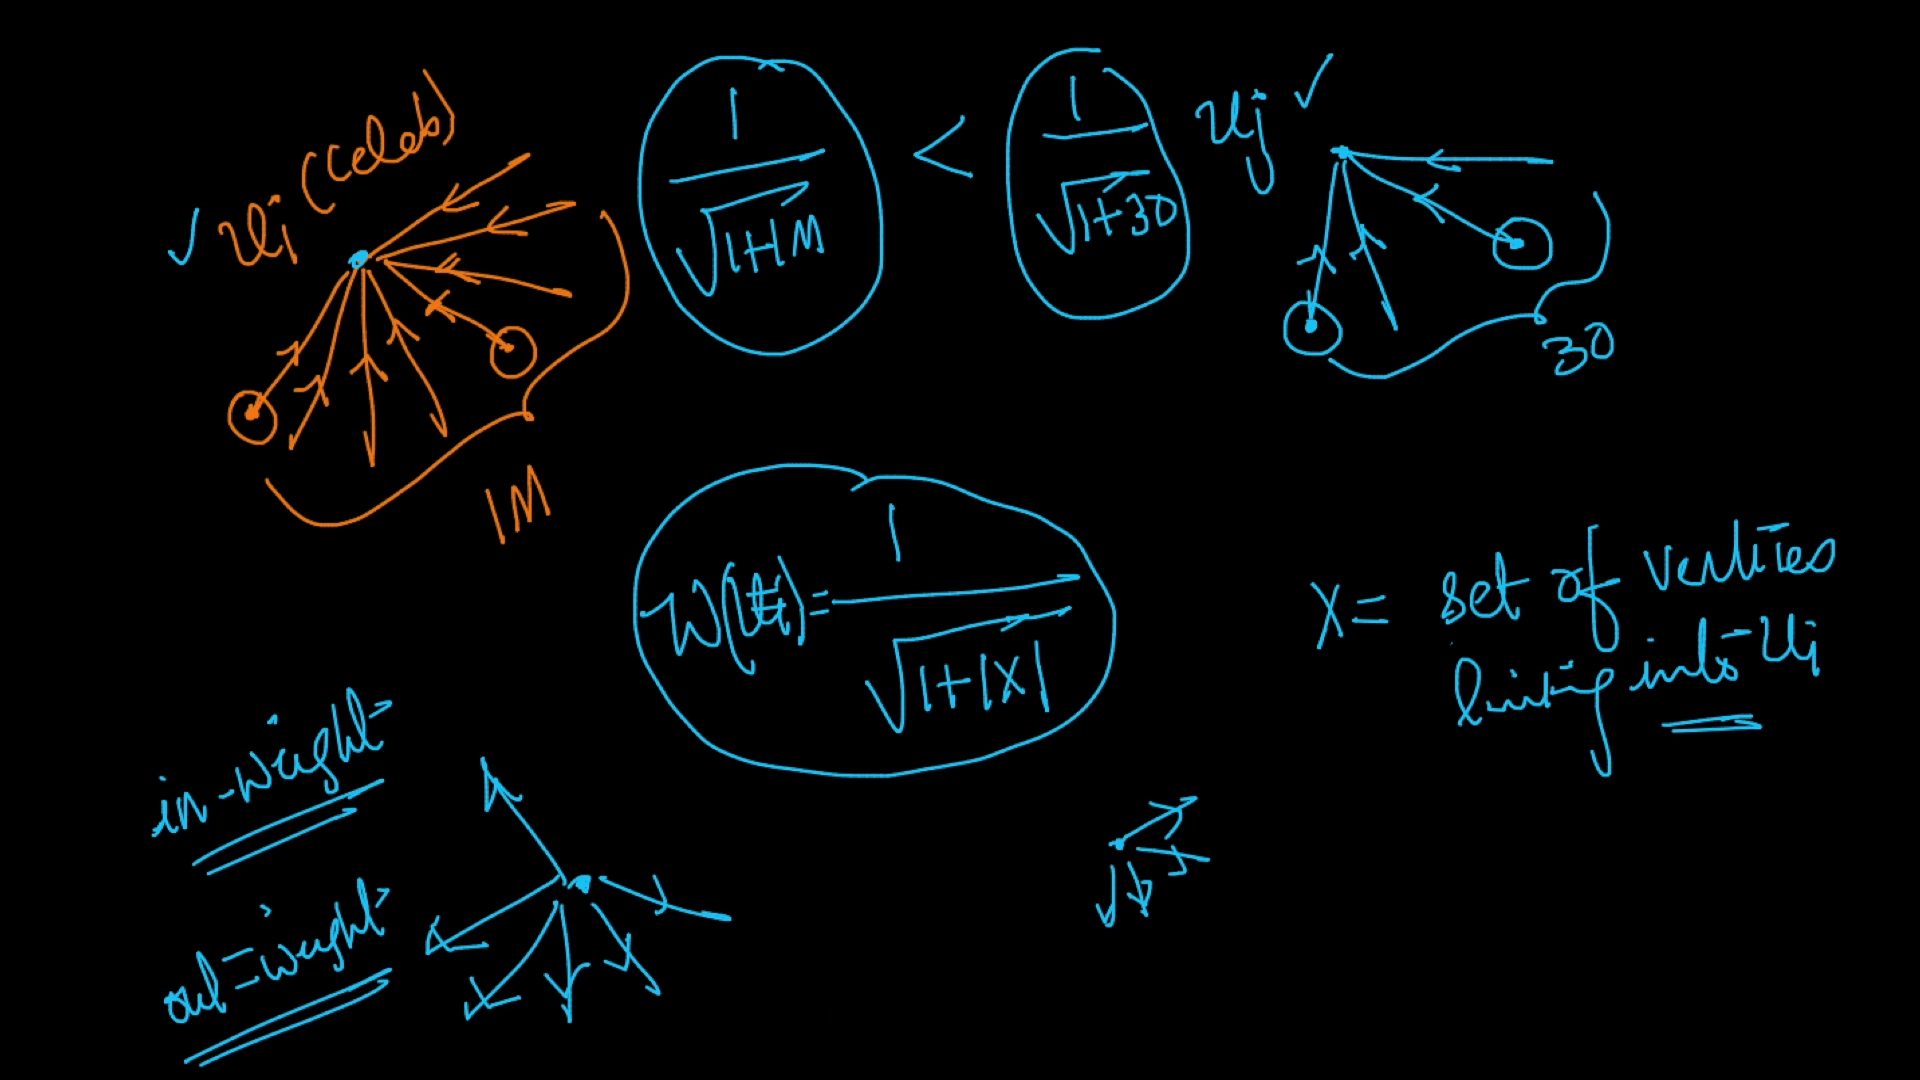 ✓ ui (celeb)
1M
1/√(1+1M) < 1/√(1+30)
uj ✓
30
W(ui) = 1/√(1+|X|)
X = set of vertices
linking into ui
in-weight
out-weight